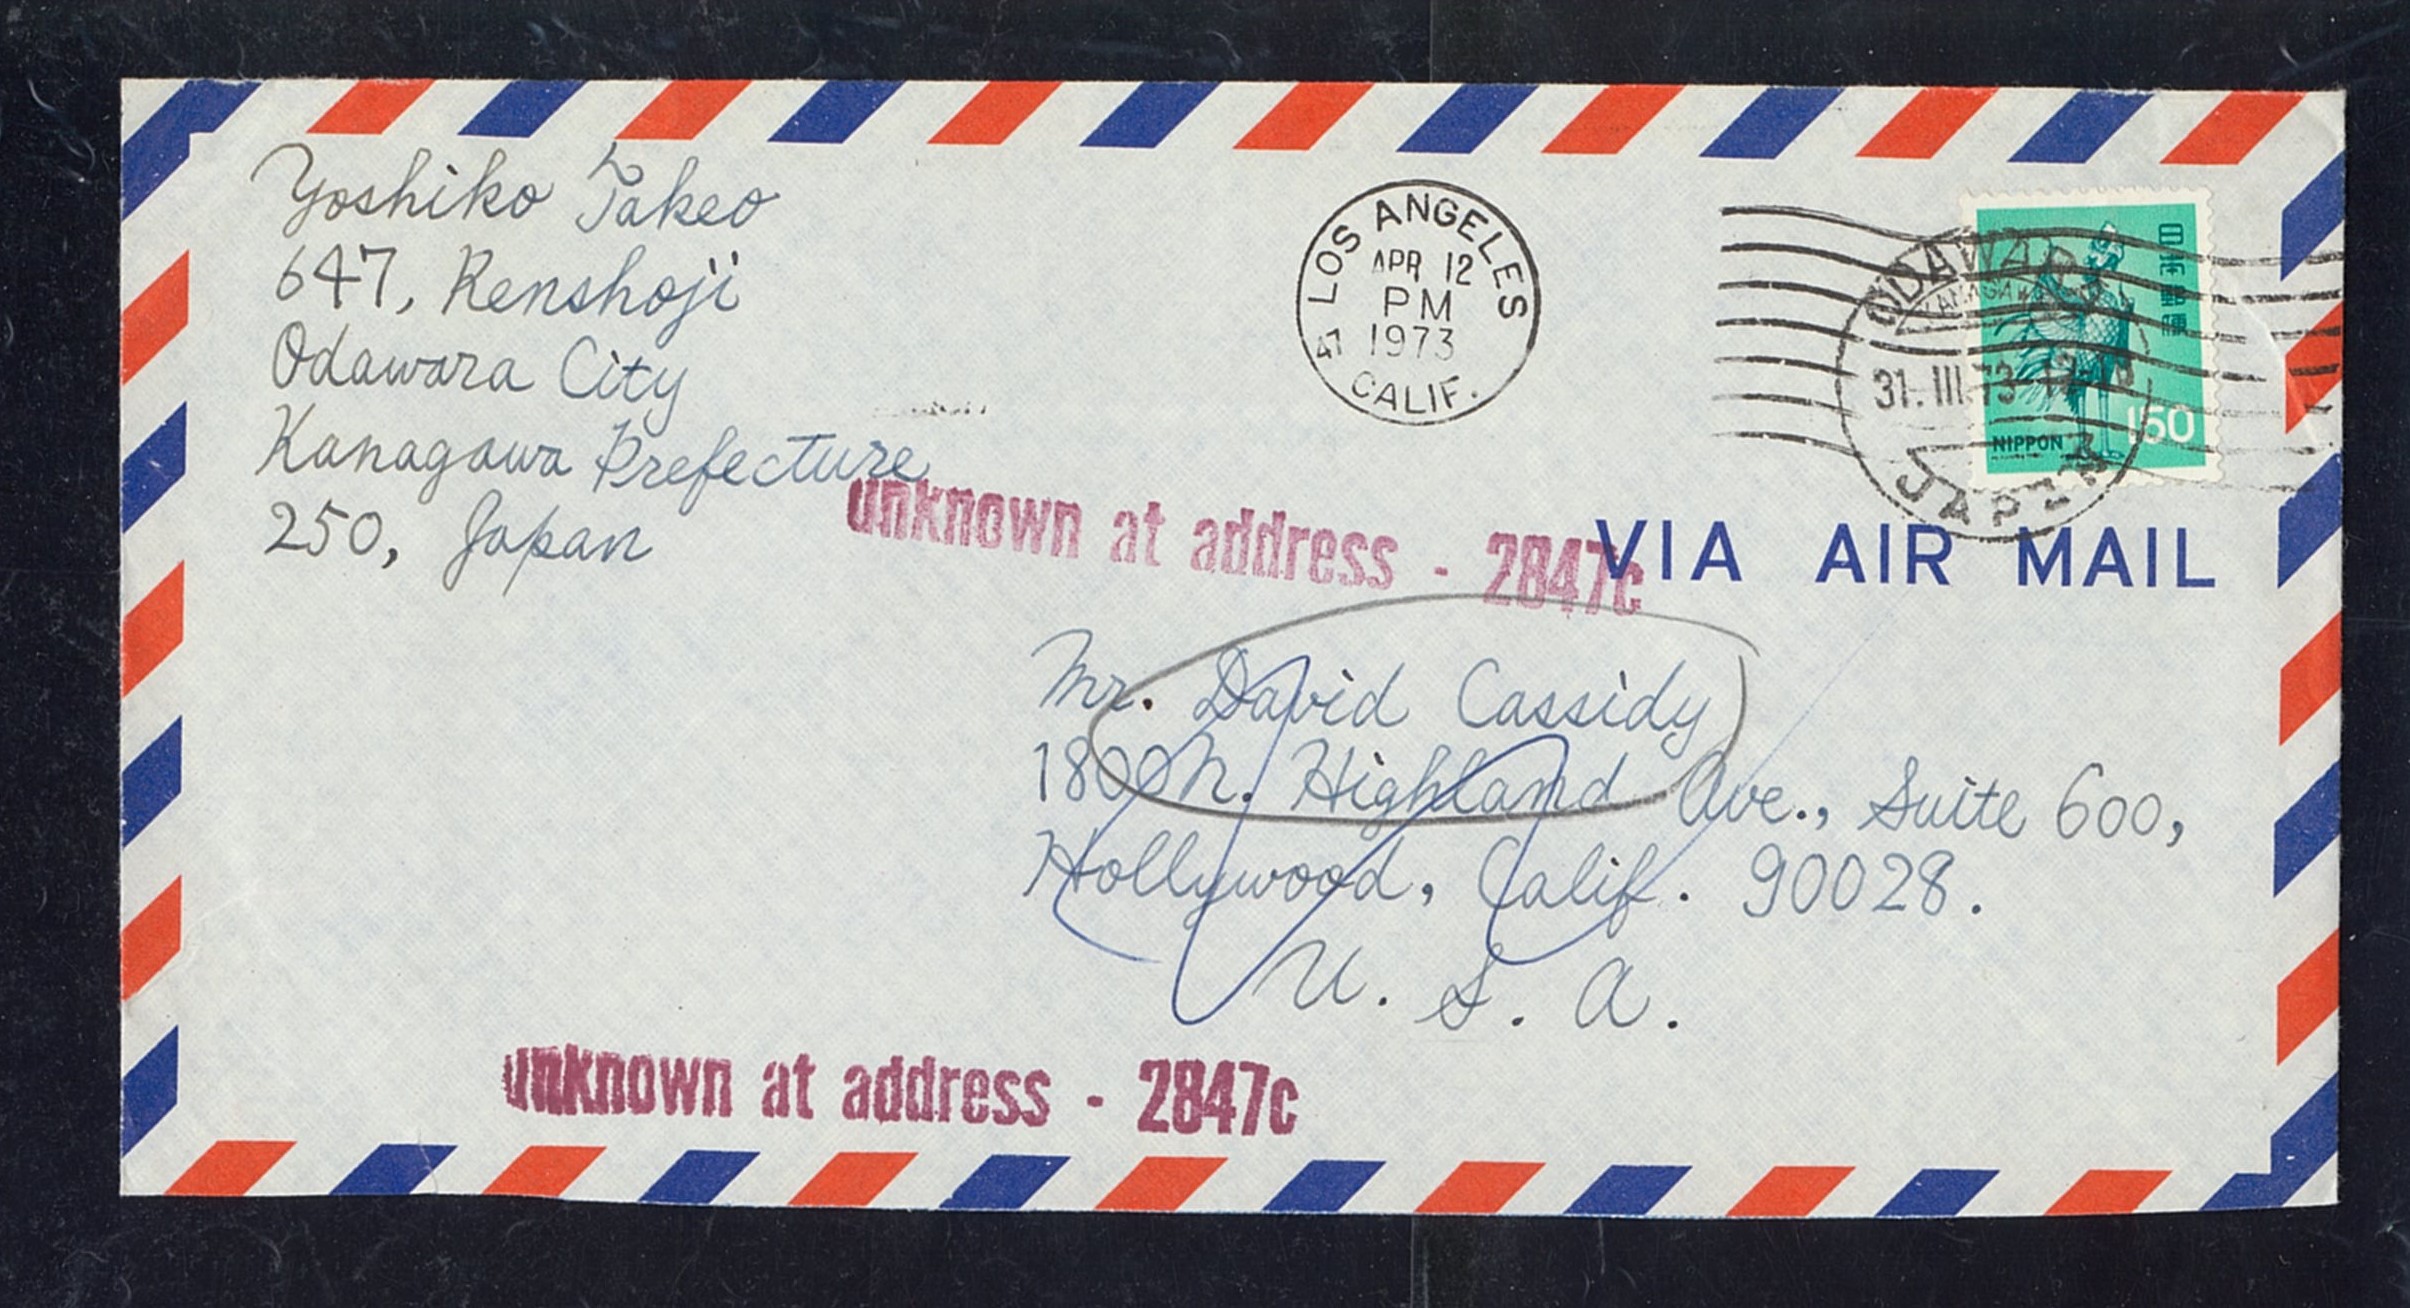 Yoshiko Takeo
647, Renshoji
Odawara City
Kanagawa Prefecture
250, Japan
LOS ANGELES
APR 12
PM
1973
47
CALIF.
ODAWARA
KANAGAWA
31. III. 73
JAPAN
日本郵便
150
NIPPON
unknown at address - 2847c
VIA AIR MAIL
Mr. David Cassidy
1800 N. Highland Ave., Suite 600,
Hollywood, Calif. 90028.
U. S. A.
unknown at address - 2847c